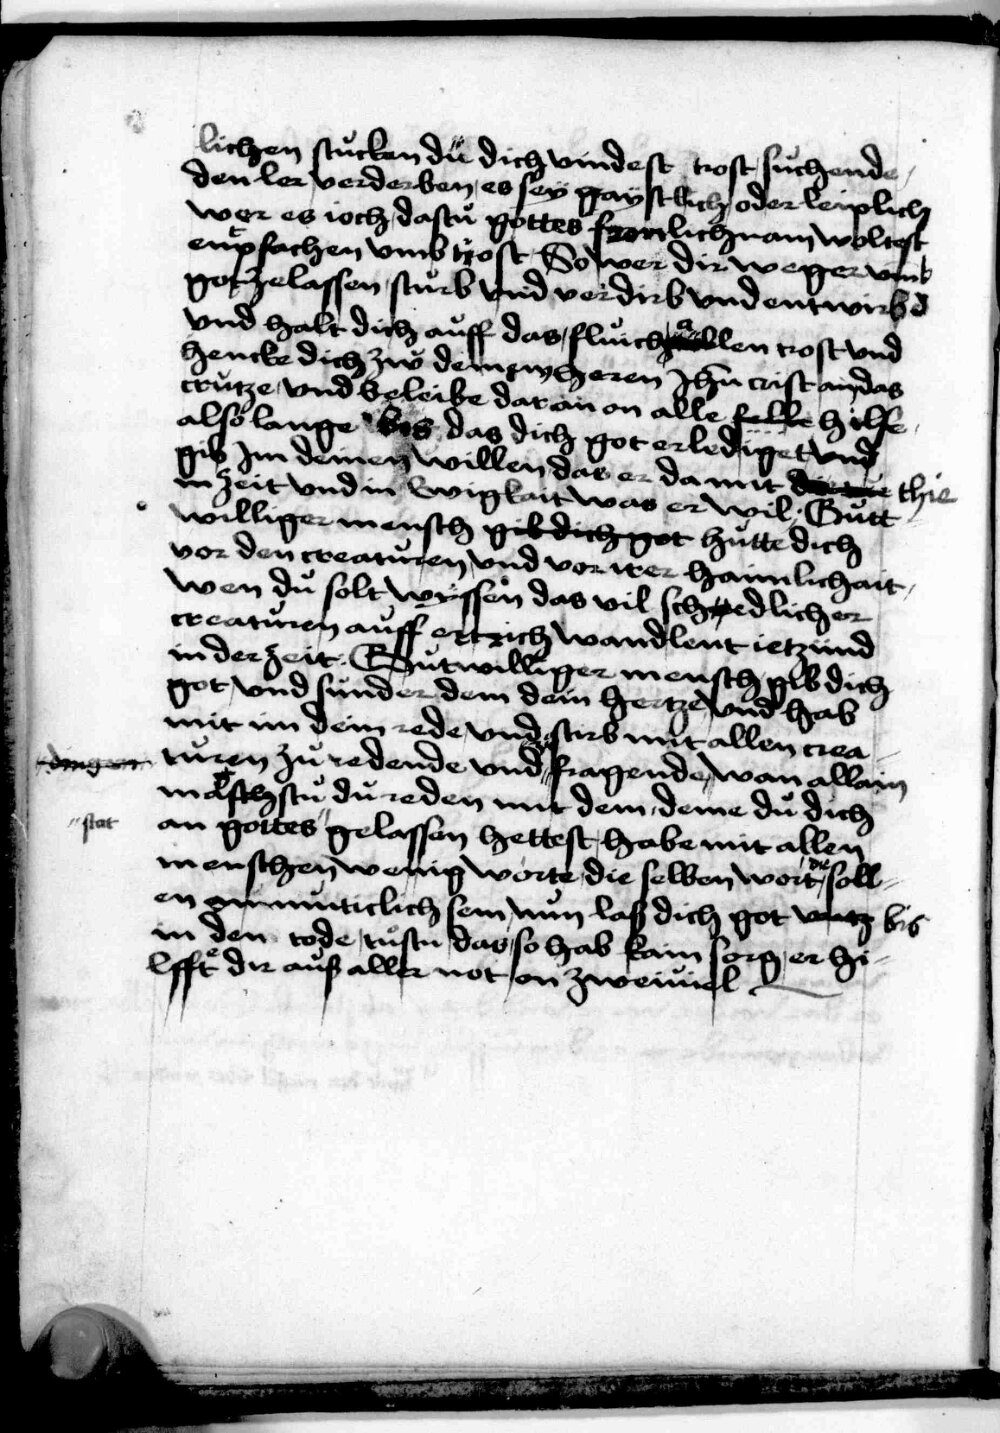 lichen stucken du dich vindest trost suchende
den ler verderben es sey gaystlich oder leiplich
wer es ioch dastu gottes fronlichnam woltest
enpfachen vmb trost So wer dir weger vmb
got gelassen sturb vnd verdirb vnd entwird
vnd halt dich auff das fluich allen trost vnd
hencke dich zw dem heren Jhu crist an das
crutze vnd beleibe dar an on alle hilfe
also lange bis das dich got erlediget vnd
gib Im deinen willen das er da mit thie
in zeit vnd in ewigkait was er wil Gutt
williger mensch gib dich got hutte dich
vor den creaturen vnd vor irer haimlichait
wen du solt wyssen das vil schedlicher
creaturen auff ertrich wandlent ietzund
in der zeit Gutwilliger mensch gib dich
got vnd sunder dem dein hertze vnd hab
mit im dein rede vnd stirb mit allen crea
turen zu redende vnd fragende wan allain
stu du reden mit dem deme du dich
stat
an gottes gelassen hettest habe mit allen
menschen wenig worte die selben wort die soll
en sein nun las dich got bis
in den tode tustu das so hab kain sorg er hi
lfft dir aus aller not on zweiuel